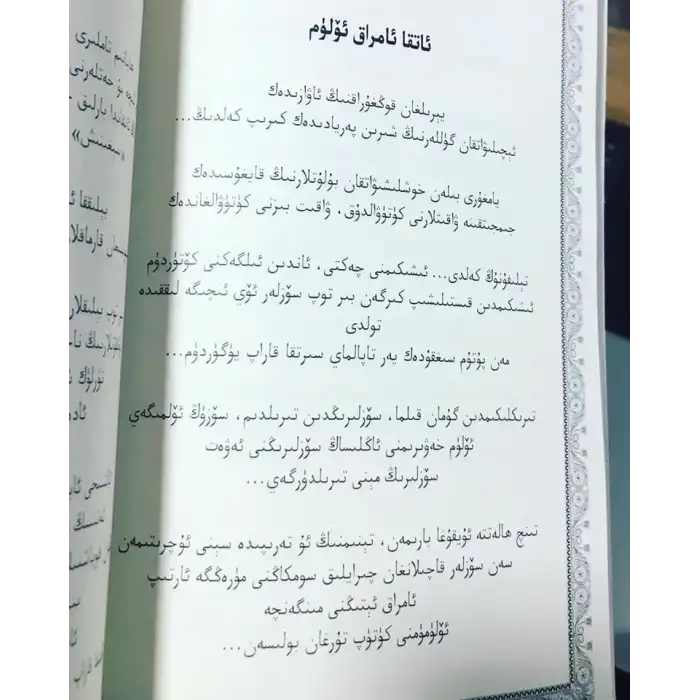 ئاتقا ئامراق ئۆلۈم
يېرىلغان قوڭغۇراقنىڭ ئاۋازىدەك
ئېچىلىۋاتقان گۈللەرنىڭ شىرىن پەريادىدەك كىرىپ كەلدىڭ...
يامغۇرى بىلەن خوشلىشىۋاتقان بۇلۇتلارنىڭ قايغۇسىدەك
جىمجىتقىنە ۋاقىتلارنى كۈتۈۋالدۇق، ۋاقىت بىزنى كۈتۈۋالغاندەك
تېلىفۇنۇڭ كەلدى... ئىشىكىمنى چەكتى، ئاندىن ئىلگەكنى كۆتۈردۈم
ئىشىكىمدىن قىستىلىشىپ كىرگەن بىر توپ سۆزلەر ئۆي ئىچىگە لىققىدە
تولدى
مەن پۇتۇم سىغقۇدەك يەر تاپالماي سىرتقا قاراپ يۈگۈردۈم...
تىرىكلىكىمدىن گۇمان قىلما، سۆزلىرىڭدىن تىرىلدىم، سۆزۈڭ ئۆلمىگەي
ئۆلۈم خەۋىرىمنى ئاڭلىساڭ سۆزلىرىڭنى ئەۋەت
سۆزلىرىڭ مېنى تىرىلدۈرگەي...
تىنچ ھالەتتە ئۇيقۇغا بارىمەن، تېنىمنىڭ ئۇ تەرىپىدە سېنى ئۇچرىتىمەن
سەن سۆزلەر قاچىلانغان چىرايلىق سومكاڭنى مۈرەڭگە ئارتىپ
ئامراق ئېتىڭنى مىنگەنچە
ئۆلۈمۈمنى كۈتۈپ تۇرغان بولىسەن...